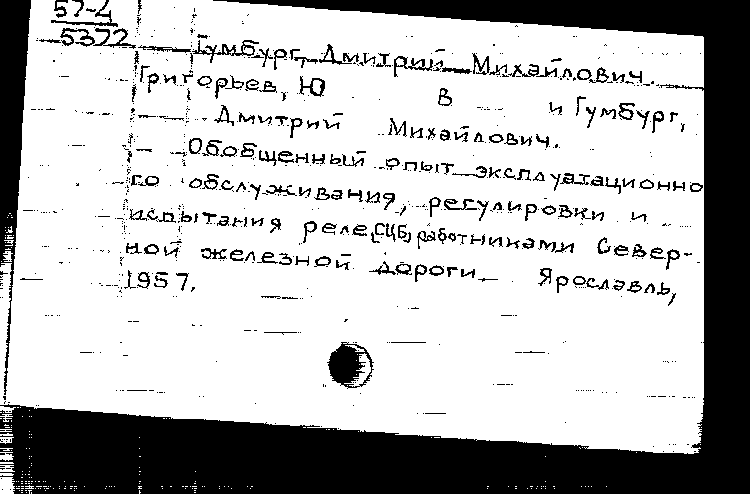 57-4
5372
Гумбург, Дмитрий Михайлович.
Григорьев, Ю В и Гумбург,
Дмитрий Михайлович.
Обобщенный опыт эксплуатационно
го обслуживания, регулировки и
испытания реле [СЦБ] работниками Север-
ной железной дороги. Ярославль,
1957.